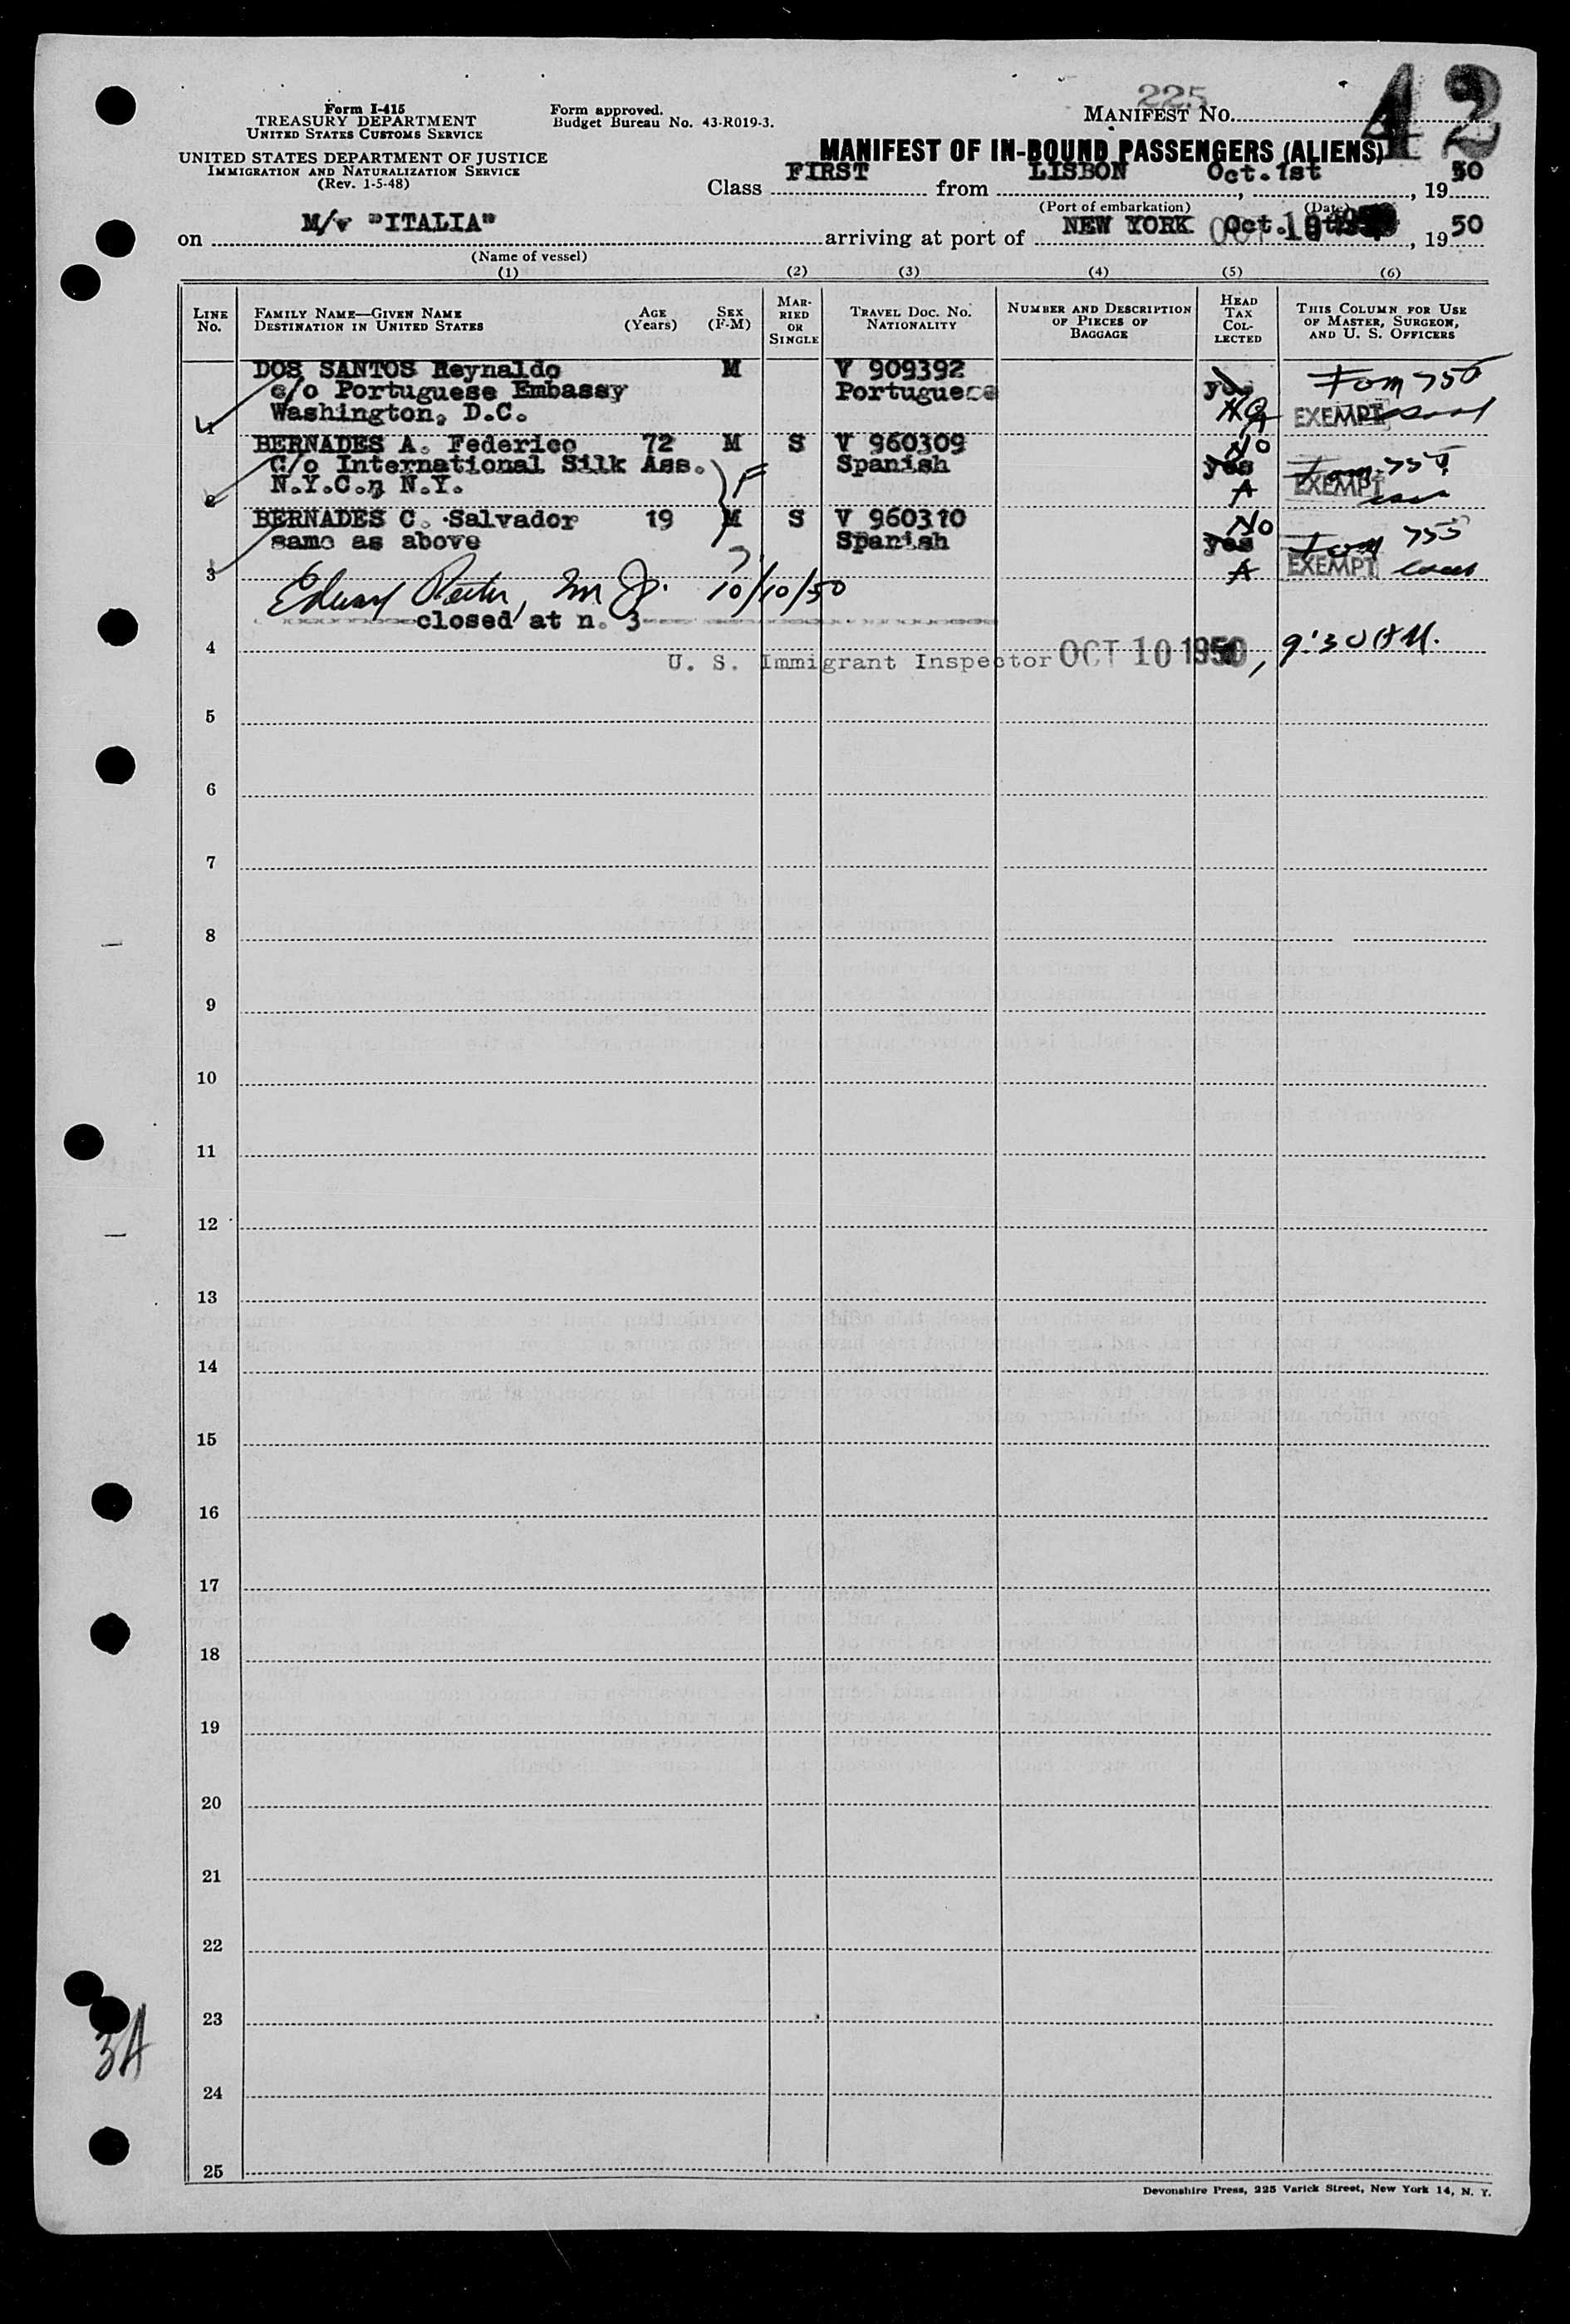 225
42
Form I-415
TREASURY DEPARTMENT
UNITED STATES CUSTOMS SERVICE
Form approved.
Budget Bureau No. 43-R019-3.
MANIFEST NO.
UNITED STATES DEPARTMENT OF JUSTICE
IMMIGRATION AND NATURALIZATION SERVICE
(Rev. 1-5-48)
MANIFEST OF IN-BOUND PASSENGERS (ALIENS)
Class FIRST from LISBON, Oct. 1st, 19 50
(Port of embarkation) (Date)
on M/v "ITALIA" arriving at port of NEW YORK Oct. 19 50
(Name of vessel)
(1) (2) (3) (4) (5) (6)
LINE No.
FAMILY NAME—GIVEN NAME
DESTINATION IN UNITED STATES
AGE (Years)
SEX (F-M)
MARRIED OR SINGLE
TRAVEL DOC. NO.
NATIONALITY
NUMBER AND DESCRIPTION OF PIECES OF BAGGAGE
HEAD TAX COLLECTED
THIS COLUMN FOR USE OF MASTER, SURGEON, AND U. S. OFFICERS
DOS SANTOS Reynaldo M V 909392
c/o Portuguese Embassy Portuguese yes
Washington, D.C. EXEMPT
1
BERNADES A. Federico 72 M S V 960309 No
C/o International Silk Ass. Spanish yes
N.Y.C. N.Y. F A EXEMPT
2
BERNADES C. Salvador 19 M S V 960310 No
same as above Spanish yes 755
3 A EXEMPT
10/10/50
closed at n. 3
4
U. S. Immigrant Inspector OCT 10 1950, 9:30 AM.
5
6
7
8
9
10
11
12
13
14
15
16
17
18
19
20
21
22
23
3A
24
25
Devonshire Press, 225 Varick Street, New York 14, N. Y.